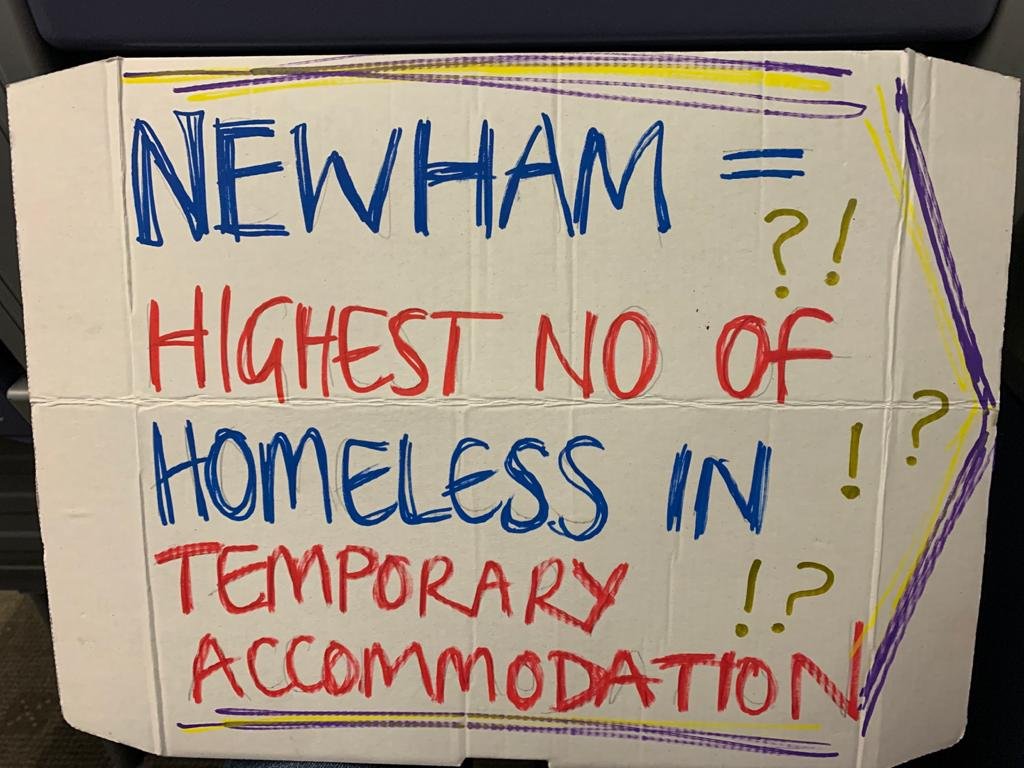 NEWHAM =
?!
HIGHEST NO OF
HOMELESS IN ! ?
TEMPORARY !?
ACCOMMODATION